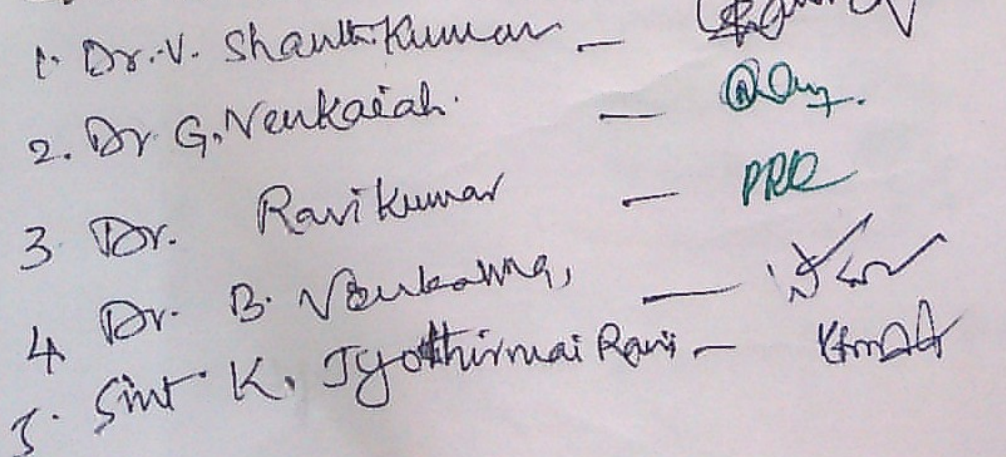 1. Dr. V. Shanth Kumar –
2. Dr G. Venkaiah. –
3. Dr. Ravi Kumar – PRR
4. Dr. B. Venkanna, –
5. Smt K. Jyothirmai Rani –